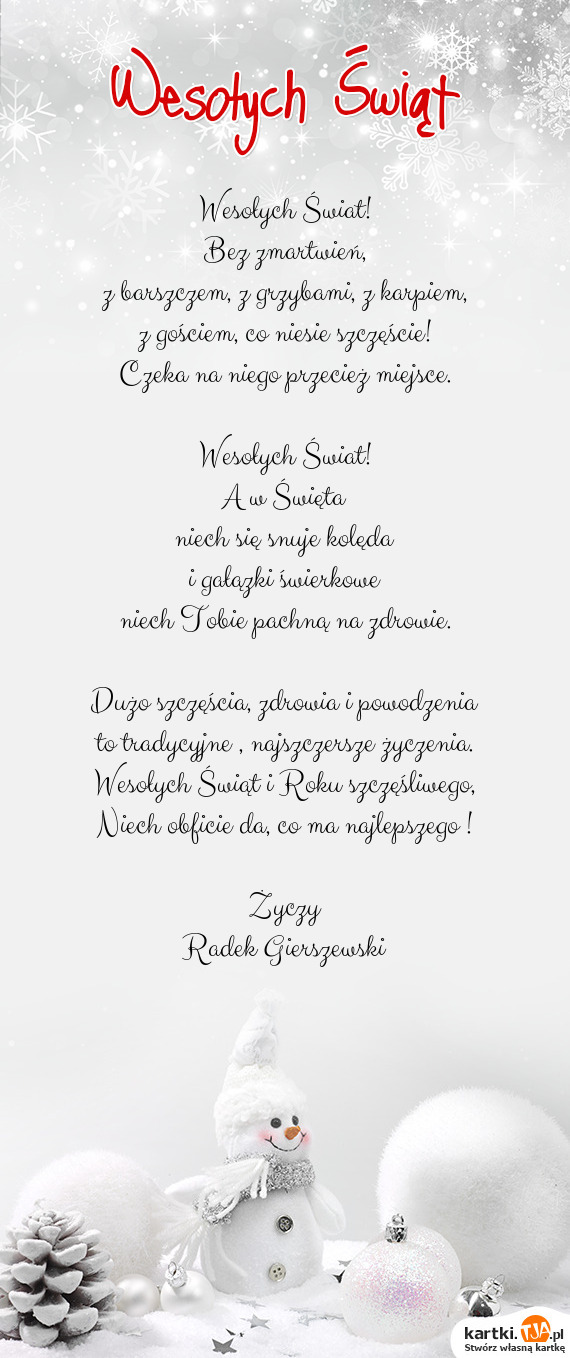 Wesołych Świąt
Wesołych Świat!
Bez zmartwień,
z barszczem, z grzybami, z karpiem,
z gościem, co niesie szczęście!
Czeka na niego przecież miejsce.
Wesołych Świat!
A w Święta
niech się snuje kolęda
i gałązki świerkowe
niech Tobie pachną na zdrowie.
Dużo szczęścia, zdrowia i powodzenia
to tradycyjne , najszczersze życzenia.
Wesołych Świąt i Roku szczęśliwego,
Niech obficie da, co ma najlepszego !
Życzy
Radek Gierszewski
kartki.TJA.pl
Stwórz własną kartkę